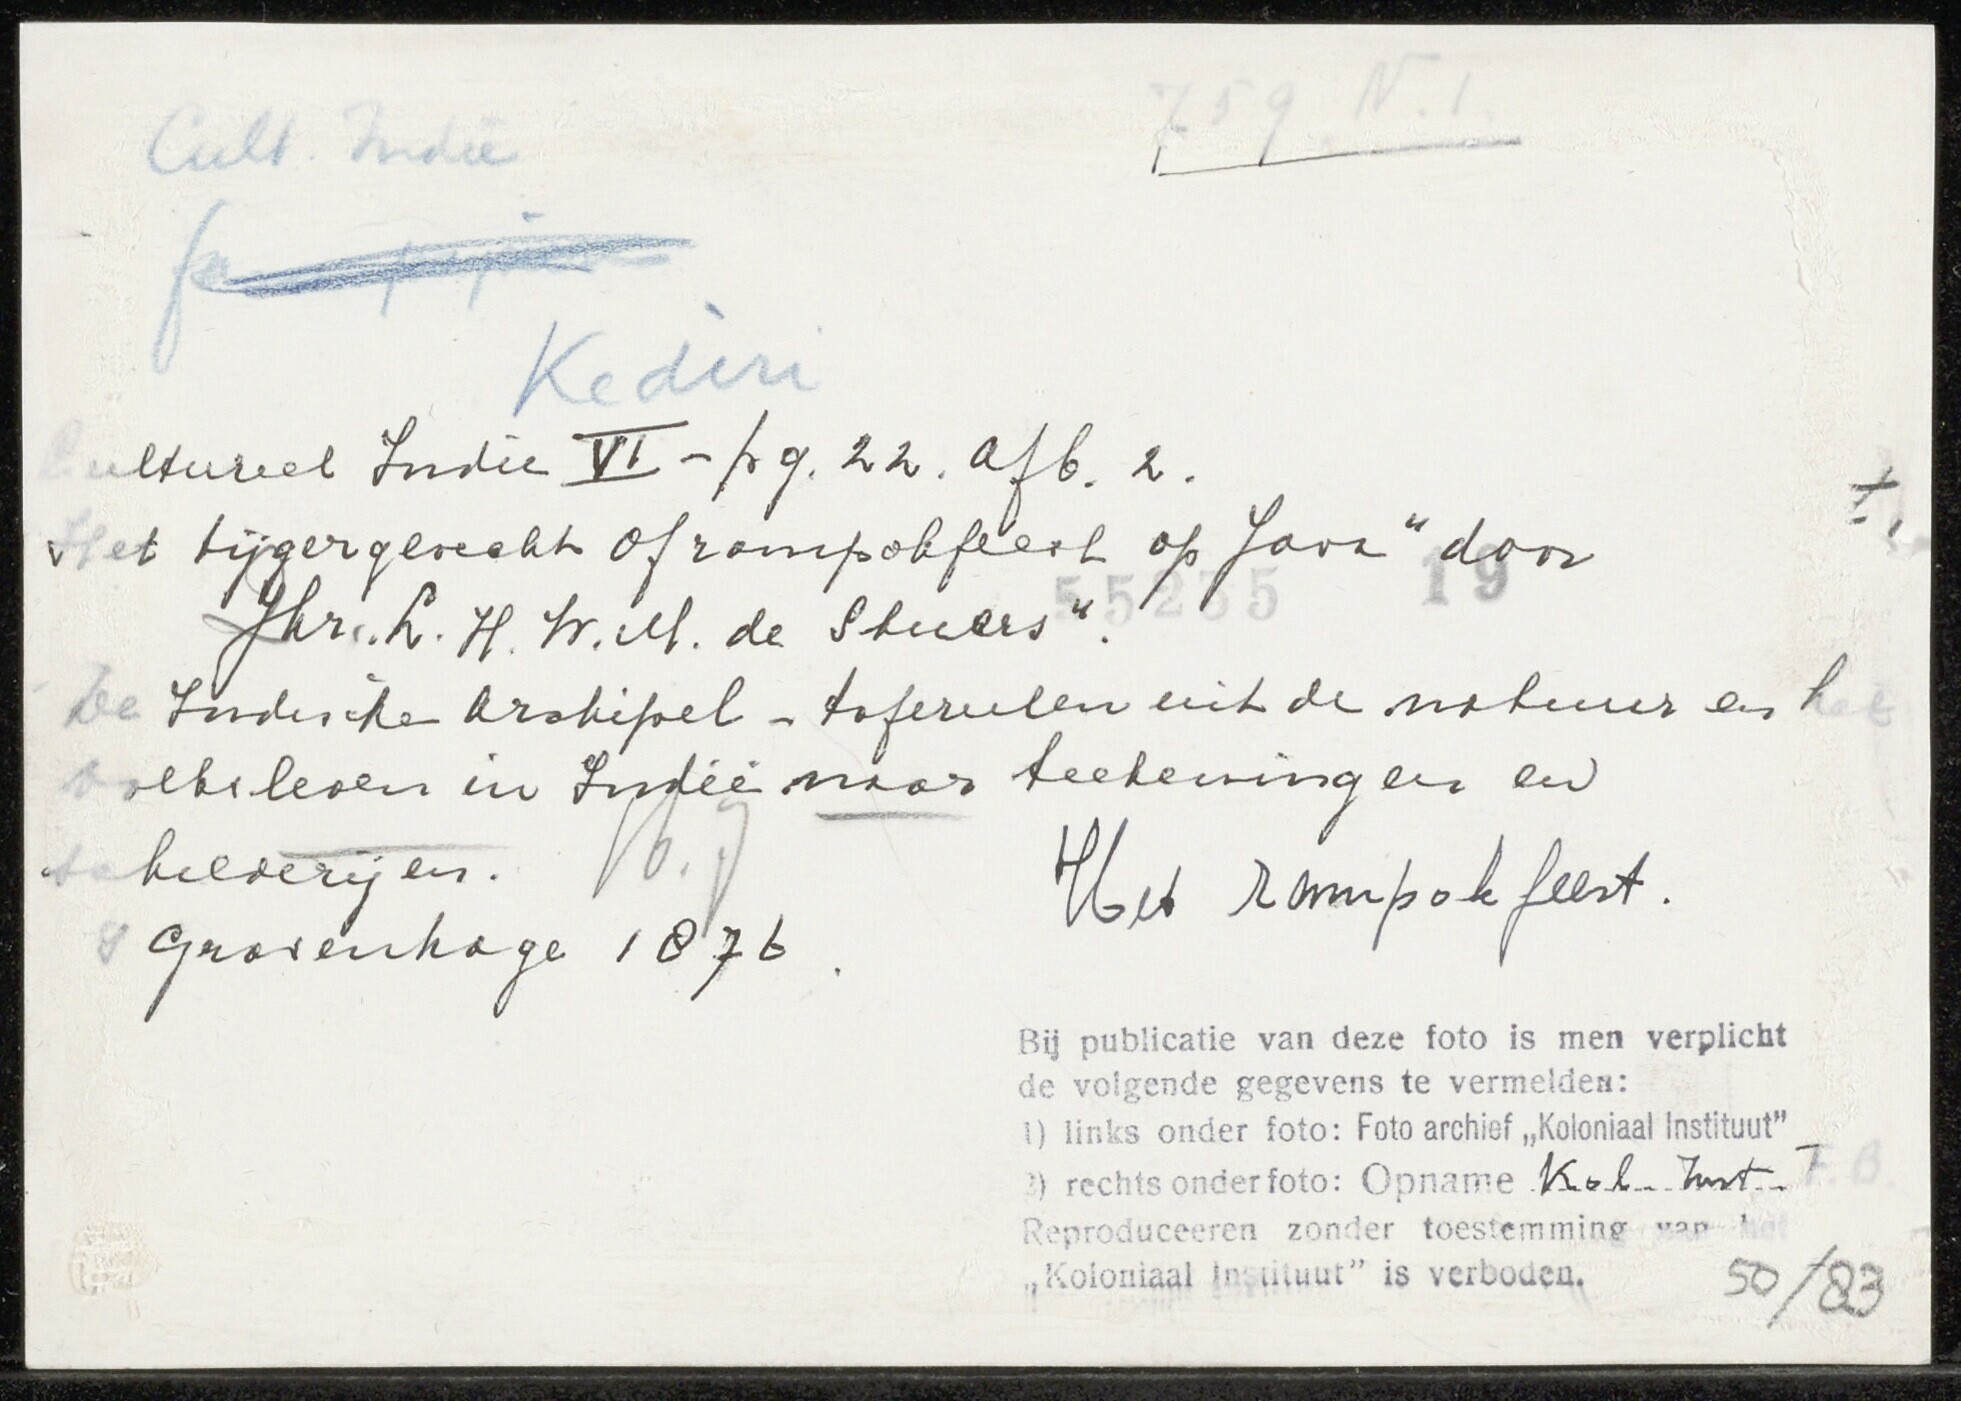 759 N.I.
Cult. Indië
Kediri
Cultureel Indië VI - pg. 22. Afb. 2.
"Het tijgergevecht of rampokfeest op Java" door
Jhr. L. H. W. M. de Stuers".
55235 19
De Indische Archipel - tafereelen uit de natuur en het
volksleven in Indië naar teekeningen en
schilderijen.
'S Gravenhage 1876.
Het rampokfeest.
Bij publicatie van deze foto is men verplicht
de volgende gegevens te vermelden:
1) links onder foto: Foto archief „Koloniaal Instituut”
2) rechts onder foto: Opname Kol. Inst. F.B.
Reproduceeren zonder toestemming van het
„Koloniaal Instituut” is verboden.
50/83